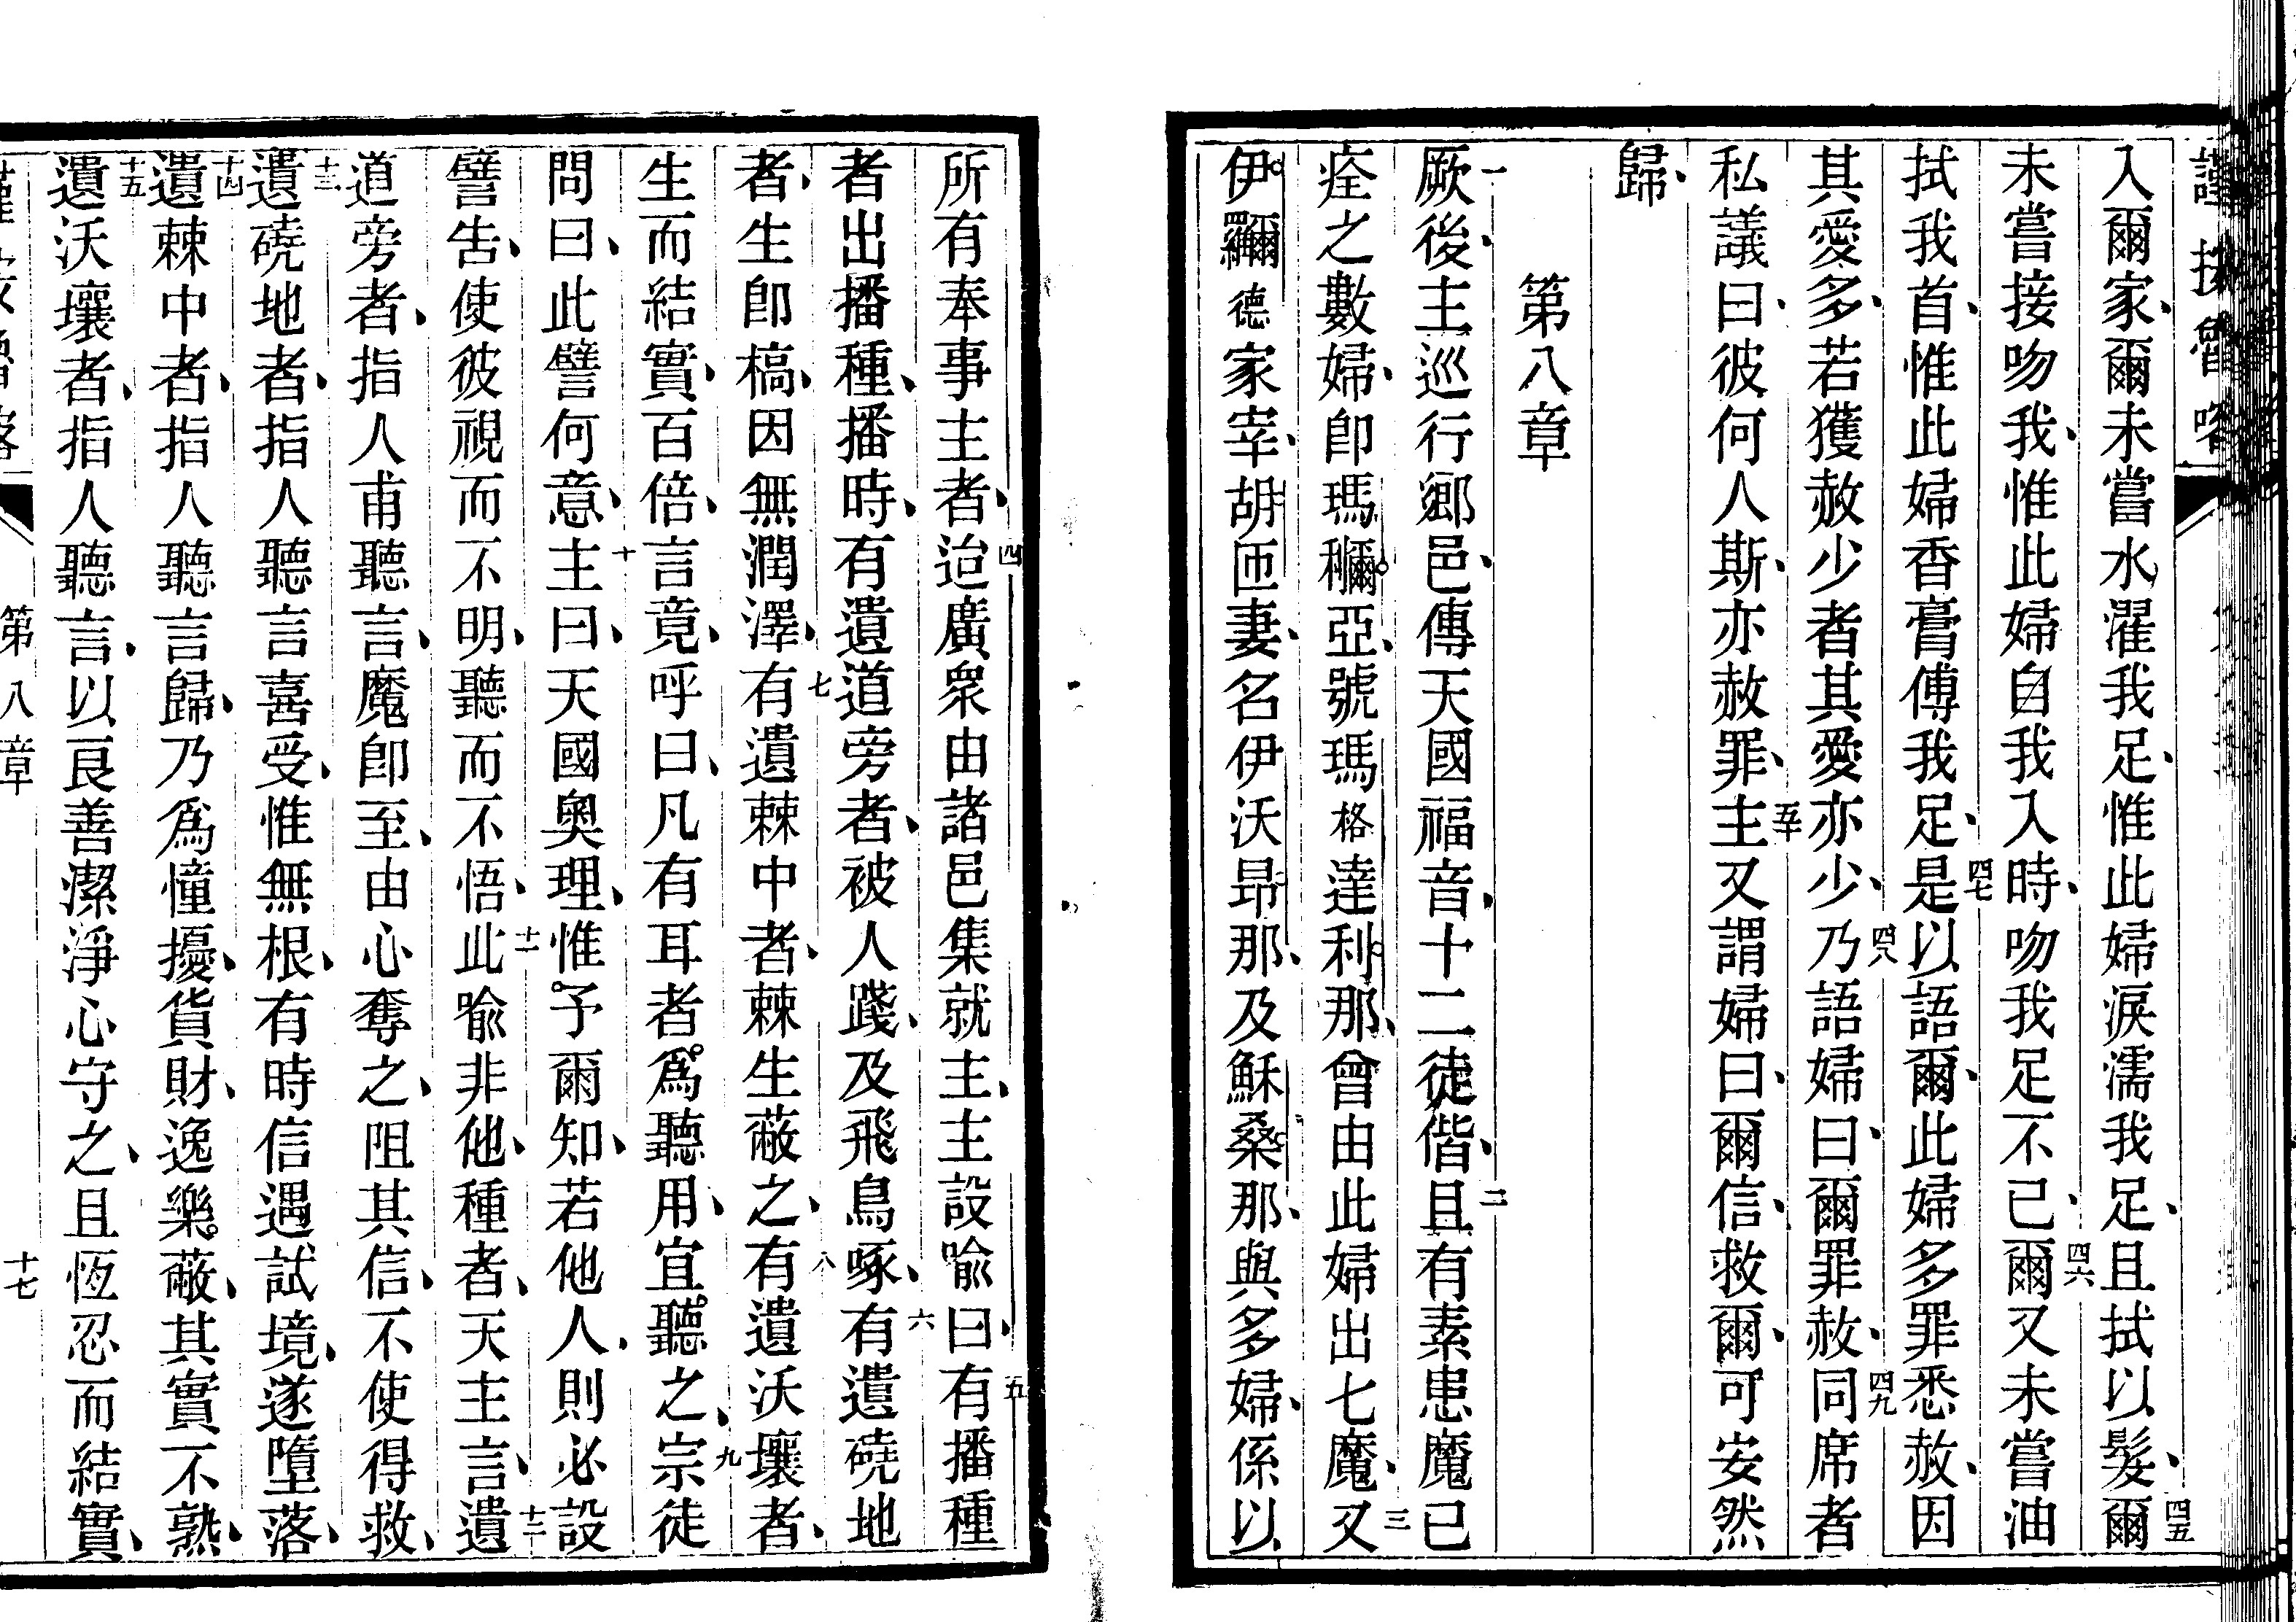 入爾家、爾未嘗水濯我足、惟此婦淚濡我足、且拭以髮、爾四五
未嘗接吻我、惟此婦自我入時、吻我足不已、爾四六又未嘗油
拭我首、惟此婦香膏傅我足、是四七以語爾、此婦多罪悉赦、因
其愛多、若獲赦少者其愛亦少、乃四八語婦曰、爾罪赦、同四九席者
私議曰、彼何人斯、亦赦罪、主五十又謂婦曰、爾信、救爾、可安然
歸、
第八章
一厥後、主巡行鄉邑、傳天國福音、十二徒偕、且二有素患魔已
痊之數婦、即瑪穪亞、號瑪格達利那、曾由此婦出七魔、又三
伊䌴德家宰、胡匝妻、名伊沃昂那、及穌桑那、與多婦、係以
所有奉事主者、迨四廣眾由諸邑集就主、主設喻曰、有五播種
者出播種、播時、有遺道旁者、被人踐、及飛鳥啄、有六遺磽地
者、生即槁、因無潤澤、有七遺棘中者、棘生蔽之、有八遺沃壤者、
生而結實、百倍、言竟、呼曰、凡有耳者爲聽用、宜聽之、宗九徒
問曰、此譬何意、主十曰、天國奧理、惟予爾知、若他人、則必設
譬吿、使彼視而不明、聽而不悟、此十一喻非他、種者、天主言、遺十二
道旁者、指人甫聽言、魔即至、由心奪之、阻其信、不使得救、
遺十三磽地者、指人聽言喜受、惟無根、有時信、遇試境、遂墮落、
遺十四棘中者、指人聽言歸、乃爲憧擾、貨財、逸樂蔽、其實不熟、
遺十五沃壤者、指人聽言、以良善潔淨心守之、且恆忍而結實、
第八章
十七